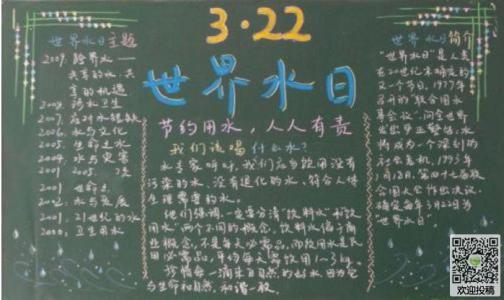 3·22
世界水日
节约用水，人人有责
世界水日主题
2009. 跨界水——
共享的水、共
享的机遇
2008. 涉水卫生
2007. 应对水短缺
2006. 水与文化
2005. 生命之水
2004. 水与灾害
2002. 水与发展
2001. 21世纪的水
2000. 卫生用水
我们该喝什么水？
水专家呼吁，我们应当饮用没有
污染的水、没有退化的水、符合人体
生理需要的水。
他们强调，一定要分清“饮料水”和“饮
用水”两个不同的概念，饮料水属于商
业概念，不是每天必需品，而饮用水是民
用必需品，平均每天需饮用1～3kg。
珍惜每一滴来自自然的好水，因为它
与生命和自然、和谐一致。
世界水日简介
“世界水日”是人类
在20世纪末确定的
又一个节日。1977年
召开的“联合国水
事会议”，向全世界
发出严正警告：水
将成为一个深刻的
社会危机，1993年
1月18日，第四十七届联
合国大会作出决议，
确定每年3月22日为
“世界水日”。
欢迎投稿